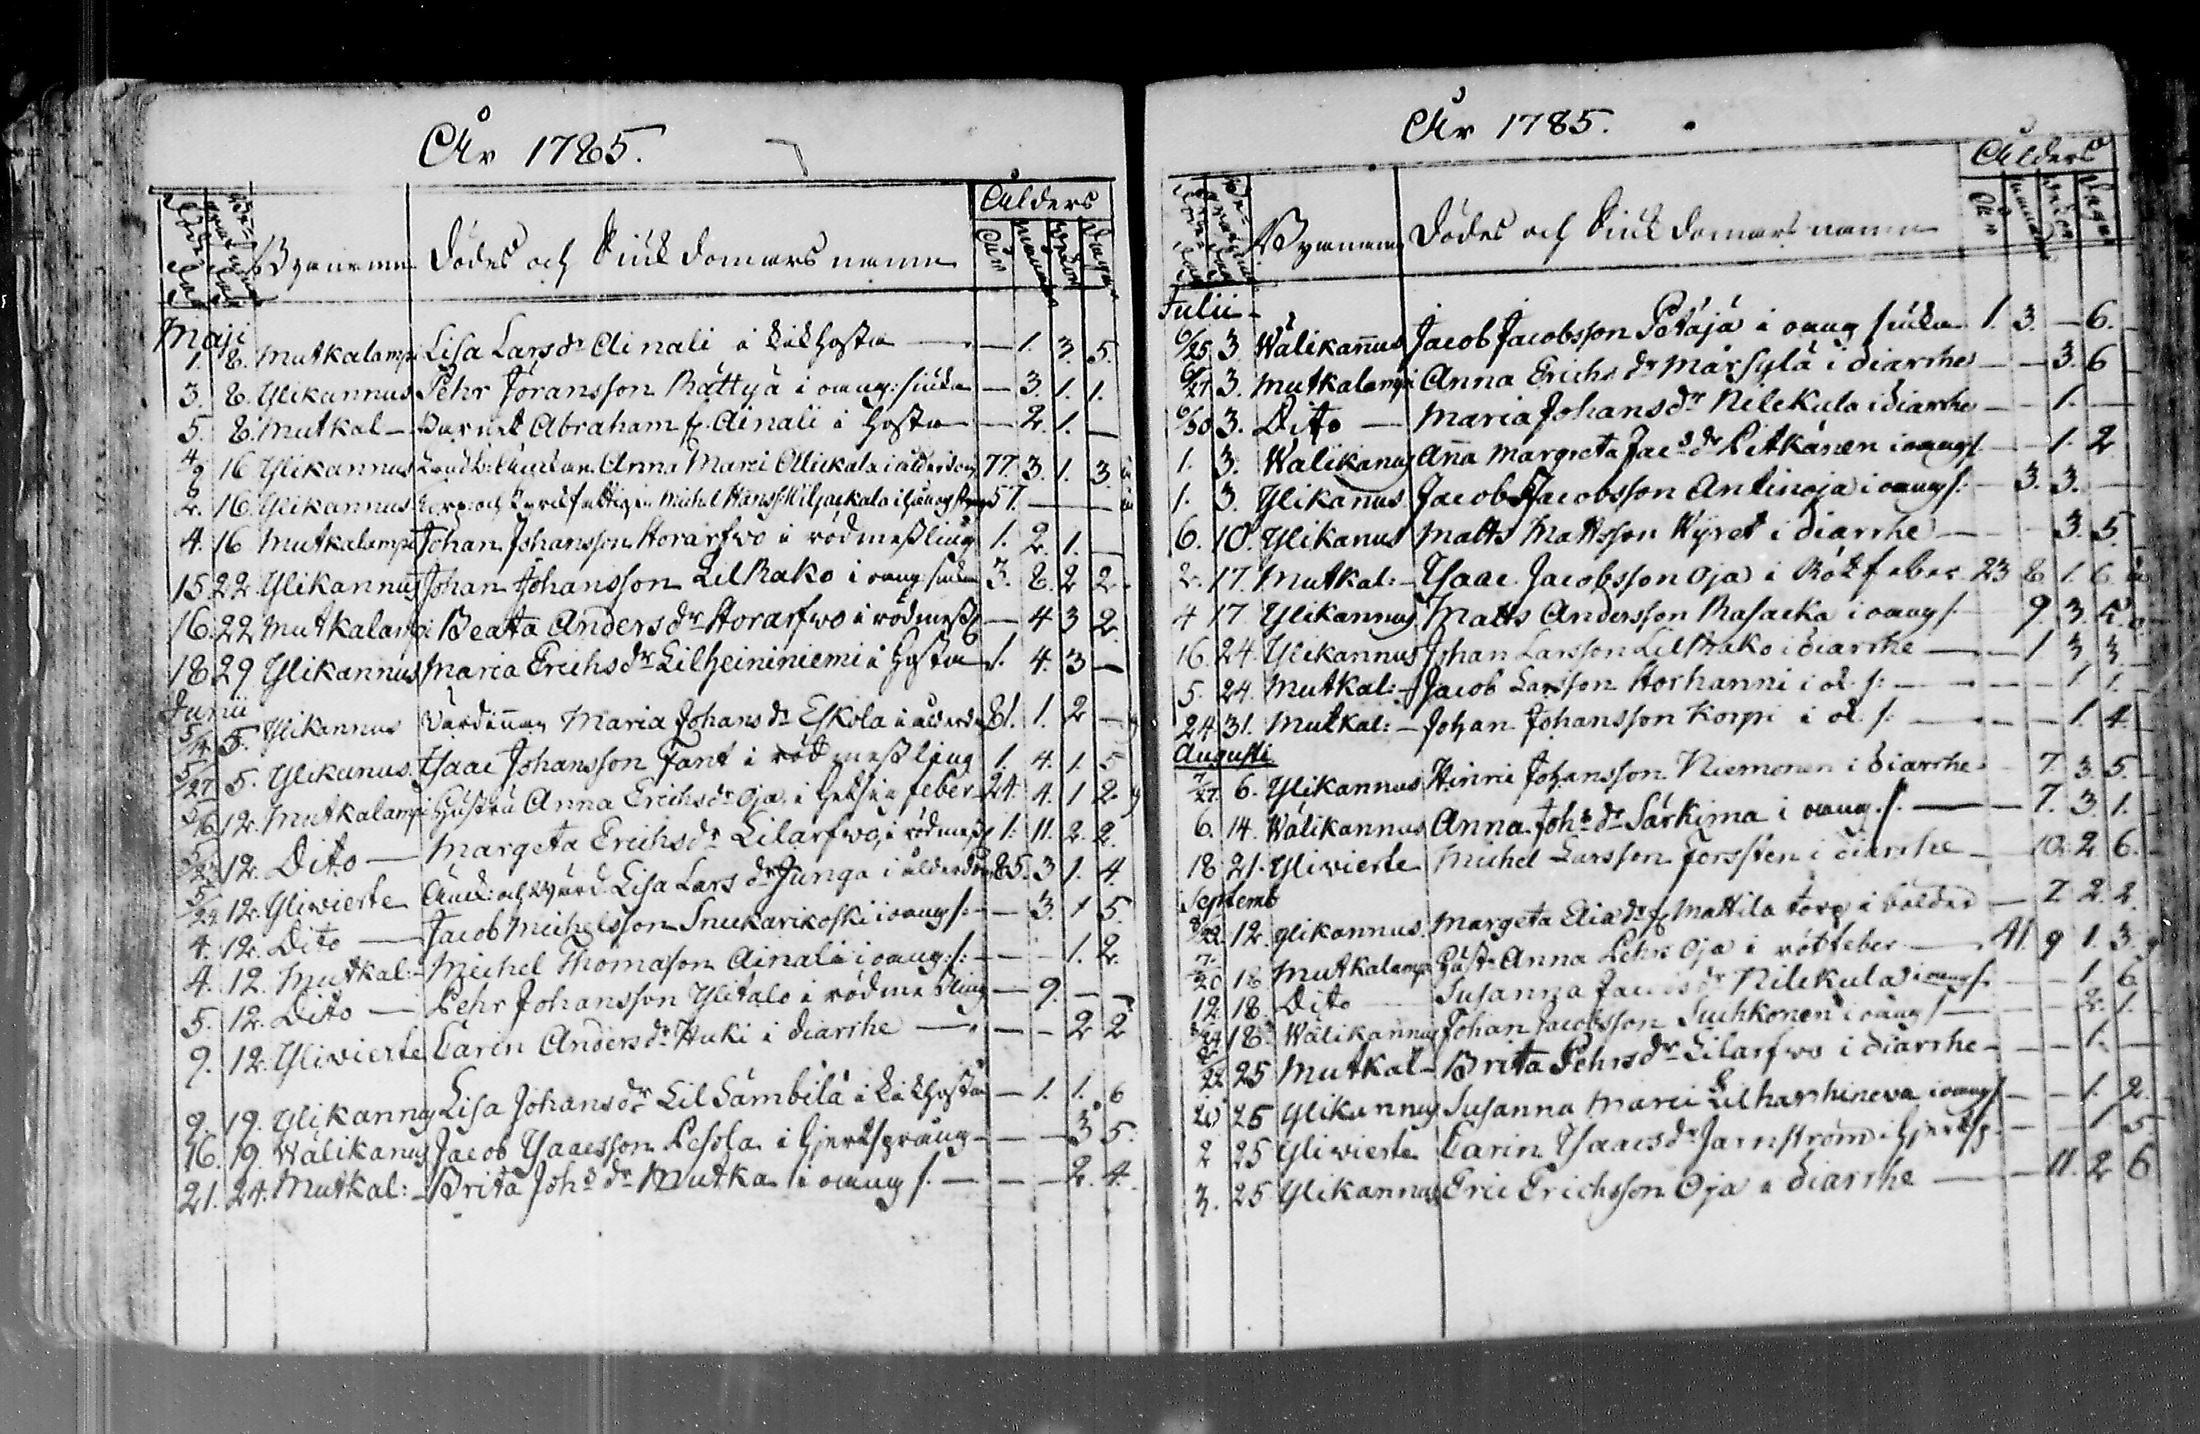 År 1785.
Ålders
Döde-dag Begrafnings dag Bÿanamn Dödes och Siukdomars namn År Månad Wekor Dagar
Maji
1. 8. Mutkalampi Lisa Larsdr Ainali i kikhosta — 1. 3. 5.
3. 8. Ylikannus Pehr Jöransson Rättyä i oang: siuka — 3. 1. 1.
5. 8. Mutkal — Barnet Abraham Ainali i hosta — 2. 1. —
4/2 16 Ylikannus Anna Marci Ollikala i ålderdom 77. 3. 1. 3.
2. 16. Ylikannus Michel Hanss: Niljankala i 57. — — —
4. 16 Mutkalampi Johan Johansson Horarfwo i rödmessling 1. 2. 1. —
15 22. Ylikannus Johan Johansson LilRako i oang siuka 3. 8. 2 2.
16. 22 Mutkalampi Beata Andersdr Horarfwo i rödmess — 4 3 2.
18 29 Ylikannus Maria Erichsdr Lilheininiemi i hosta 1. 4. 3 —
Junii
5/14 5. Ylikannus Wärdinnan Maria Johansdr Eskola i ålderd 81. 1. 2 —
5/27 5. Ylikanus. Ysaac Johansson Fant i rödmessling 1. 4. 1 5
5/6 12. Mutkalampi Hustru Anna Erichsdr Oja i hetsig feber 24. 4. 1 2
12. Dito — Margeta Erichsdr Lilarfwo, i rödmess 1. 11. 2. 2.
5/24 12. Ylivierte Änck: och Lisa Larsdr Junga i ålderdom 85. 3 1. 4.
4. 12. Dito — Jacob Michelsson Snickarikoski i oang s: — 3. 1 5.
4. 12. Mutkal: — Michel Thomason Ainali i oang: s: — — 1. 2.
5. 12. Dito — Pehr Johansson Ylitalo i rödmessling — 9. — —
9. 12. Ylivierte Carin Andersdr Huki i diarrhe — — — 2 2
9. 19. Ylikannus Lisa Johansdr LilSämbilä i kikhosta — 1. 1. 6
16. 19. Wälikanus Jacob Ysaacsson Pesola i hjertsprång — — — 3 5.
21. 24. Mutkal: — Brita Johs dr Mutka i oang s. — — — 2. 4.
År 1785.
Ålders
Döde-dag Begrafnings dag Bÿanamn Dödes och Siukdomars namn År Månad Wekor Dagar
Julii
6/25 3 Wälikannus Jacob Jacobsson Petäjä i oang siuka 1. 3. — 6.
6/27 3. Mutkalampi Anna Erichsdr Märsylä i diarrhe — — 3. 6
6/30 3. Dito — Maria Johansdr Nilekula i diarrhe — — 1. —
1. 3. Wälikanus Anna Margreta Jacs dr Pitkänen i oang s. — — 1. 2
1. 3. Ylikanus Jacob Jacobsson Antinoja i oang s: — 3. 3. —
6. 10. Ylikanus Matts Mattsson Wyret i diarrhe — — — 3. 5.
2. 17. Mutkal: — Ysaac Jacobsson Oja i Rötfeber 23 8 1. 6.
4 17. Ylikannus Matts Andersson Rasacka i oang s. — 9. 3.
16. 24. Ylikannus Johan Larsson LilRako i diarrhe — — 1 3 3.
5. 24. Mutkal: — Jacob Larsson Horhanni i d. s: — — — 1 1.
24 31. Mutkal: — Johan Johansson Korpi i d. s: — — — 1. 4.
Augusti
7/27 6. Ylikannus Hinri Johansson Niemonen i diarrhe — 7. 3 5.
6. 14. Wälikannus Anna Johs dr Särkima i oang. s. — — 7. 3. 1.
18 21. Ylivierte Michel Larsson Forssten i diarrhe — 10. 2 6.
Septemb
8/22. 12. Ylikannus. Margeta Eliadr Mattila torp i bölder — 7 2. 2.
7/20 18 Mutkalampi Hustr. Anna Pehrs Oja i rötfeber — 41 9 1. 3.
12. 18. Dito — Susanna Nilekula i oang s. — — 1. 6
8/24 18. Wälikannus Johan Jacobsson Suihkonen i oang s — — — 2. 1.
22 25 Mutkal — Brita Pehrsdr Lilarfwo i diarrhe — — — 1. —
20 25 Ylikannus Susanna Marci Lilharhineva i oang s — — 1. 2.
2 25 Ylivierte Carin Ysaacsdr Jarnström i hjertsp. — — 1 5
3. 25 Ylikannus Eric Erichsson Oja i diarrhe — — 11. 2 6